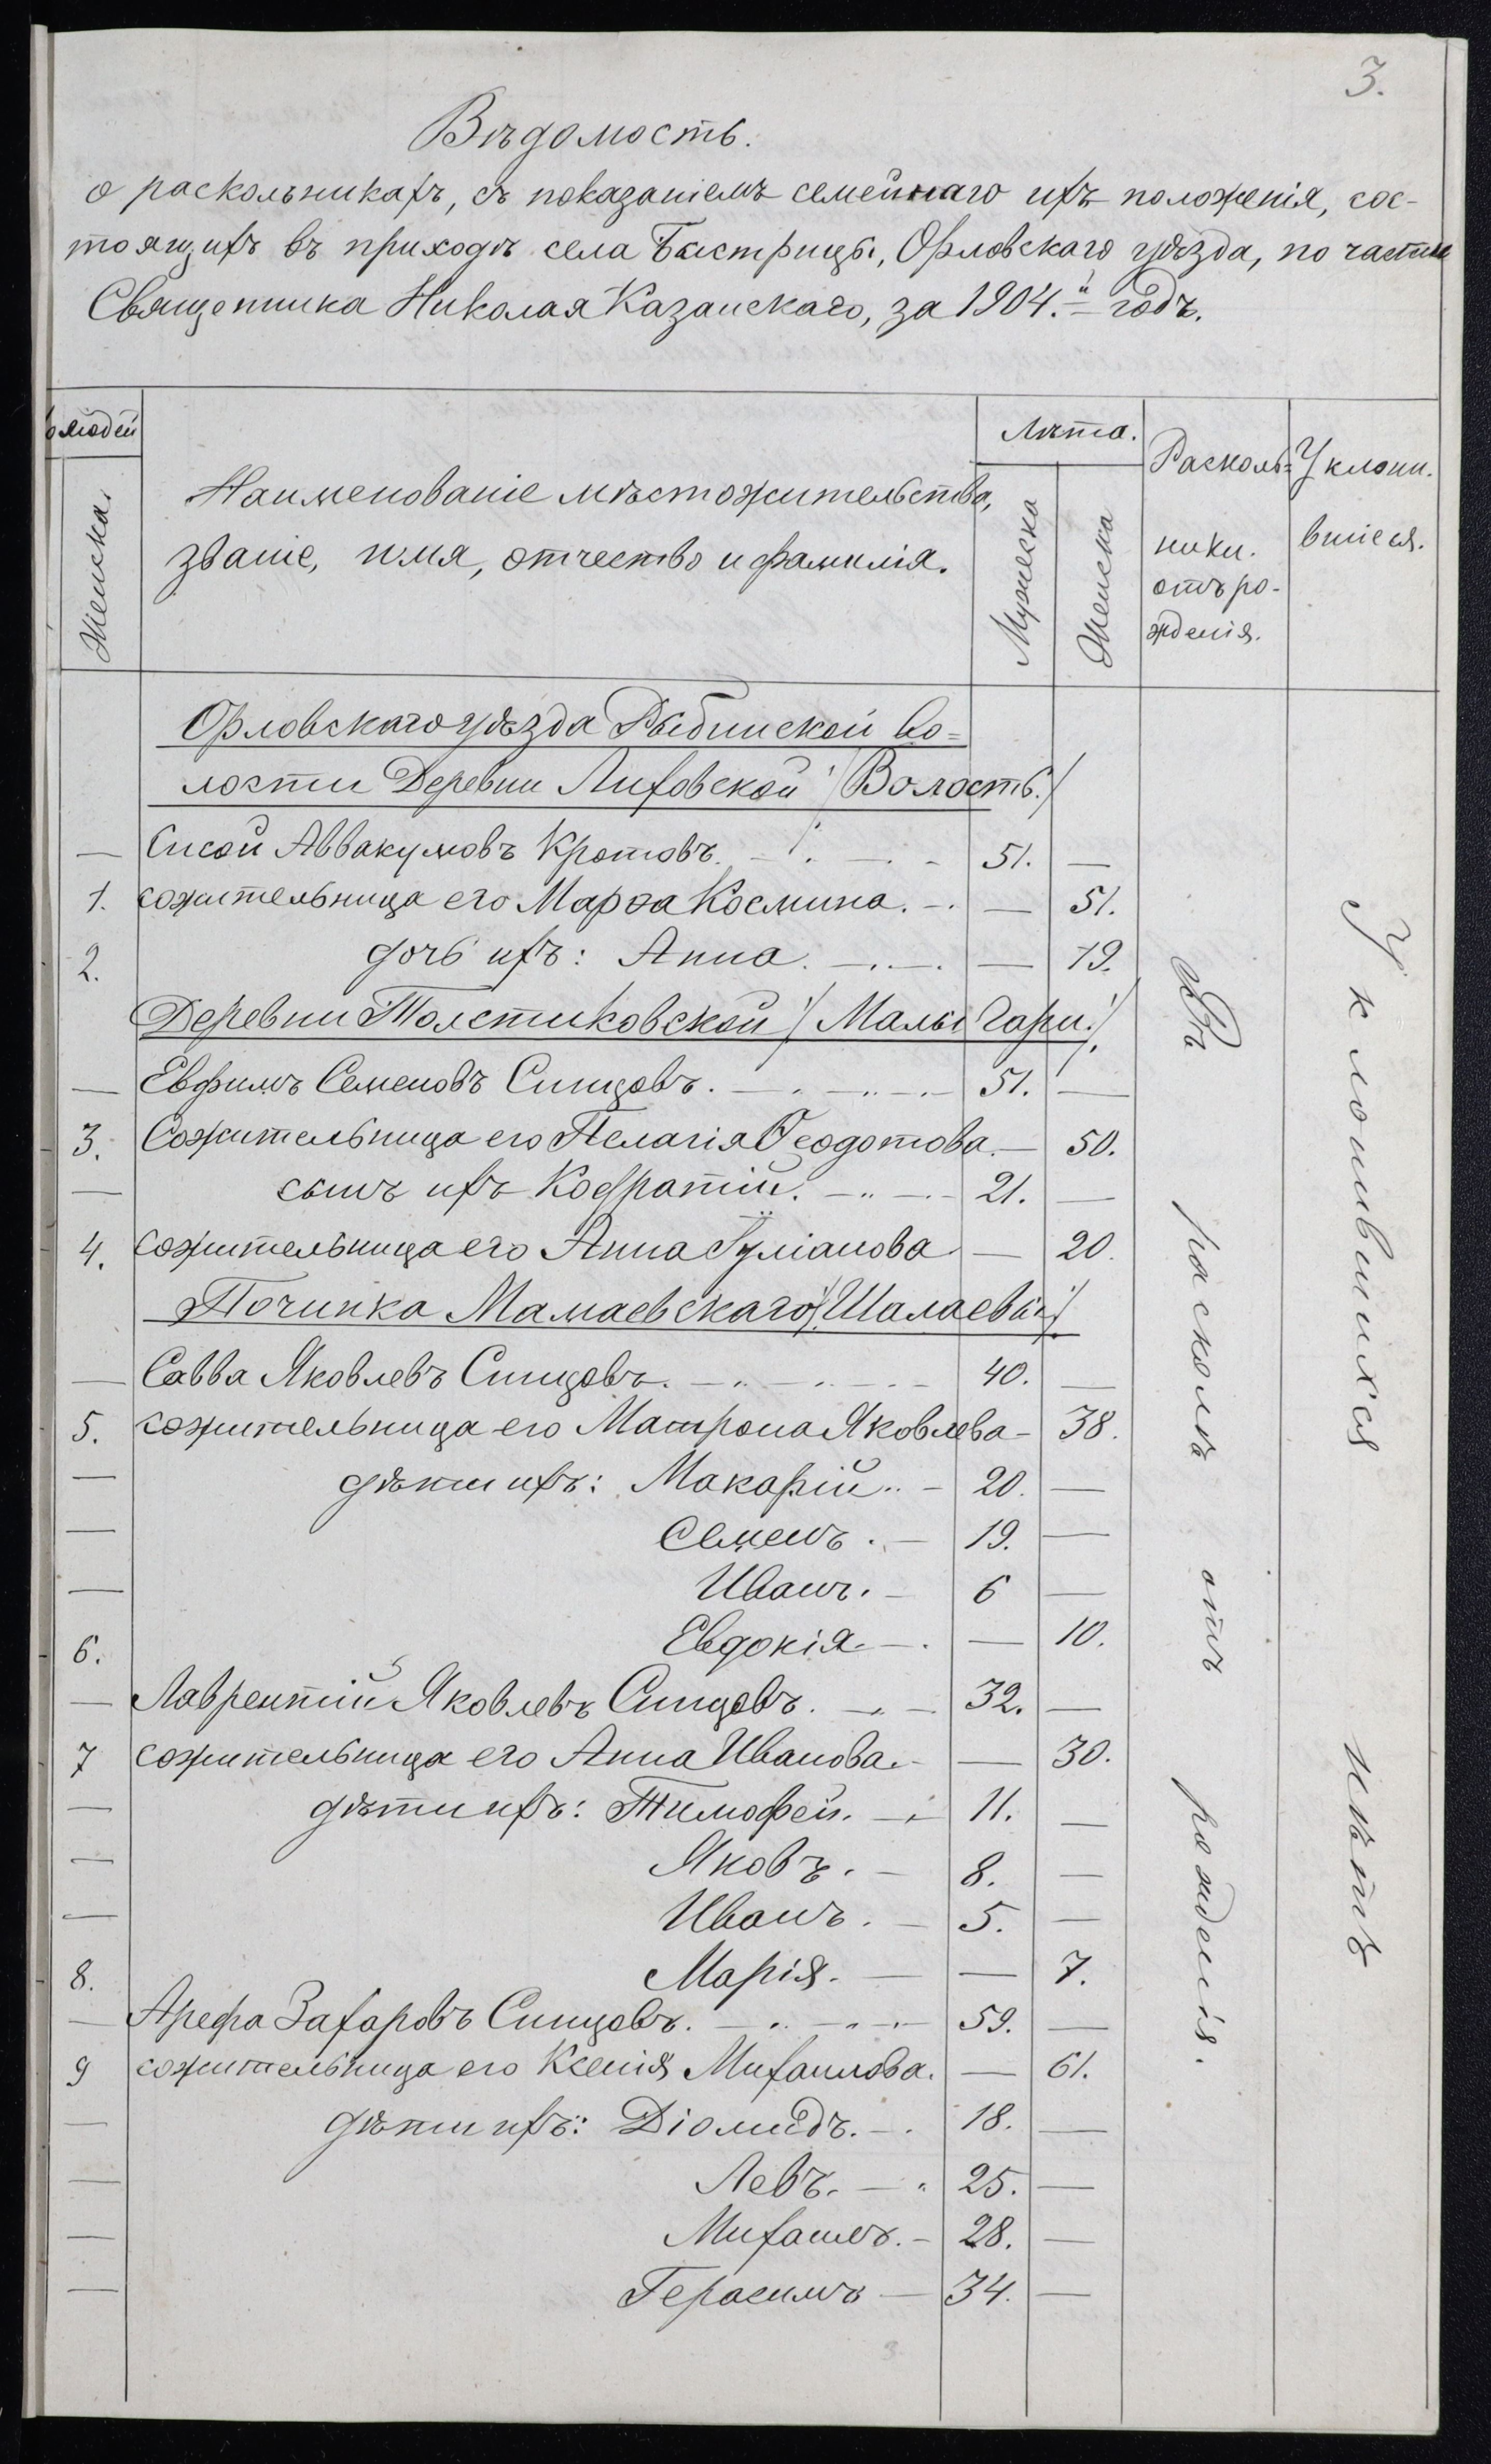 3.
Вѣдомость.
о раскольникахъ, съ показаніемъ семейнаго ихъ положенія, сос-
тоящихъ въ приходѣ села Быстрицы, Орловскаго уѣзда, по части
Священника Николая Казанскаго, за 1904.й годъ.
людей
Женска.
Наименованіе мѣстожительства,
званіе, имя, отчество и фамилія.
Лѣта.
Мужеска
Женска
Расколь=
ники.
отъ ро-
жденія.
Уклони.
вшіеся.
Орловскаго уѣзда Рыбинской во=
лости Деревни Лиховской /Волость./
— Сисой Аввакумовъ Кротовъ. 51. —
1. сожительница его Марѳа Космина. — 51.
2. дочь ихъ: Анна. — 19.
Деревни Толстиковской /Малы Гари./
— Евфимъ Семеновъ Синцовъ. 51. —
3. Сожительница его Пелагія Ѳеодотова. — 50.
— сынъ ихъ Кодратій. 21. —
4. сожительница его Анна Гуліанова — 20.
Починка Мамаевскаго /Шалаевы/.
— Савва Яковлевъ Синцовъ. 40. —
5. сожительница его Матрона Яковлева — 38.
— дѣти ихъ: Макарій 20. —
— Семенъ. 19. —
— Иванъ. 6 —
6. Евдокія. — 10.
— Лаврентій Яковлевъ Синцовъ. 32. —
7 сожительница его Анна Иванова. — 30.
— дѣти ихъ: Тимофей. 11. —
— Яковъ. 8. —
— Иванъ. 5. —
8. Марія. — 7.
— Арефа Захаровъ Синцовъ. 59. —
9 сожительница его Ксенія Михаилова. — 61.
— дѣти ихъ: Діомидъ. 18. —
— Левъ. 25. —
— Михаилъ. 28. —
— Герасимъ 34. —
Въ расколѣ отъ рожденія.
Уклонившихся нѣтъ